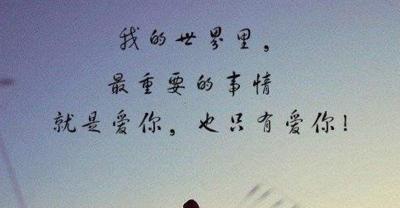 我的世界里，
最重要的事情
就是爱你，也只有爱你！